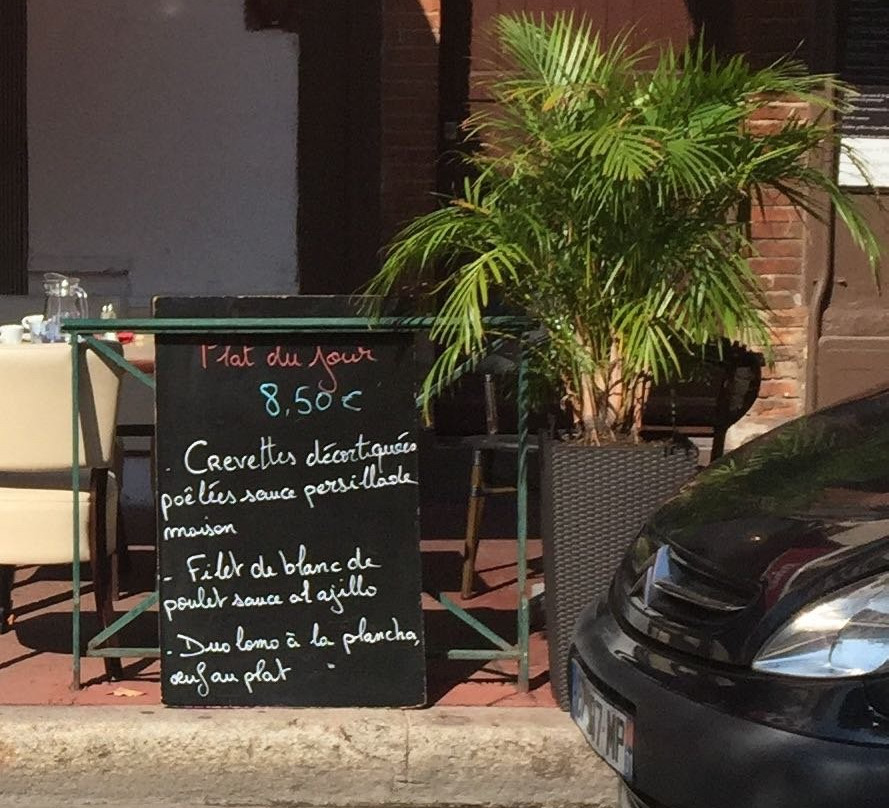 Plat du Jour
8,50 €
- Crevettes décortiquées
poêlées sauce persillade
maison
- Filet de blanc de
poulet sauce al ajillo
- Duo lomo à la plancha,
œuf au plat